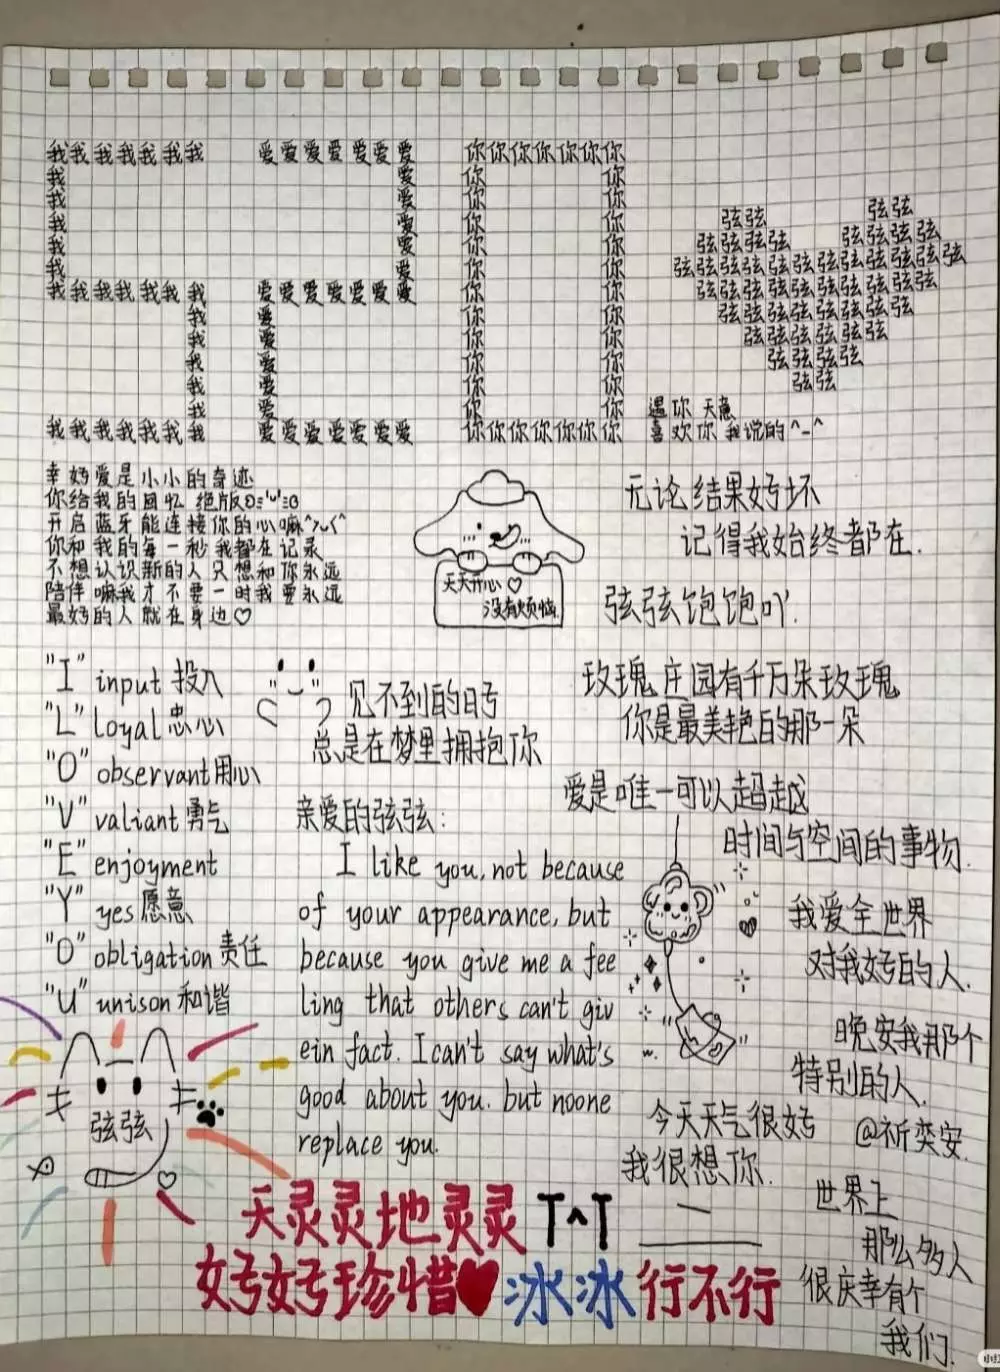 我我我我我我我 爱爱爱爱爱爱爱 你你你你你你你
我 爱 你 你
我 爱 你 你
我 爱 你 你
我 爱 你 你
我 爱 你 你
我我我我我我我 爱爱爱爱爱爱爱 你 你
我 爱 你 你
我 爱 你 你
我 爱 你 你
我 爱 你 你
我 爱 你 你
我我我我我我我 爱爱爱爱爱爱爱 你你你你你你你
弦弦 弦弦
弦弦弦弦 弦弦弦弦
弦弦弦弦弦弦弦弦弦弦弦弦
弦弦弦弦弦弦弦弦弦弦
弦弦弦弦弦弦弦弦
弦弦弦弦弦弦
弦弦弦弦
弦弦
遇你 天意
喜欢你 我说的^-^
幸好爱是小小的奇迹
你给我的回忆 绝版ʚ='ω'=ɞ
开启蓝牙能连接你的心嘛^>ω<^
你和我的每一秒我都在记录
不想认识新的人只想和你永远
陪伴嘛我才不要一时我要永远
最好的人就在身边♡
天天开心♡
没有烦恼.
无论结果好坏
记得我始终都在.
弦弦饱饱吖.
"I" input 投入
"L" loyal 忠心
"O" observant 用心
"V" valiant 勇气
"E" enjoyment
"Y" yes 愿意
"O" obligation 责任
"U" unison 和谐
见不到的日子
总是在梦里拥抱你
玫瑰庄园有千万朵玫瑰
你是最美艳的那一朵
爱是唯一可以超越
时间与空间的事物.
亲爱的弦弦:
I like you, not because
of your appearance, but
because you give me a fee
ling that others can't giv
ein fact. I can't say what's
good about you. but noone
replace you.
我爱全世界
对我好的人.
晚安我那个
特别的人.
@祈奕安.
今天天气很好
我很想你.
弦弦
世界上
那么多人
很庆幸有个
我们.
天灵灵地灵灵 T^T 二
好好珍惜♥冰冰行不行